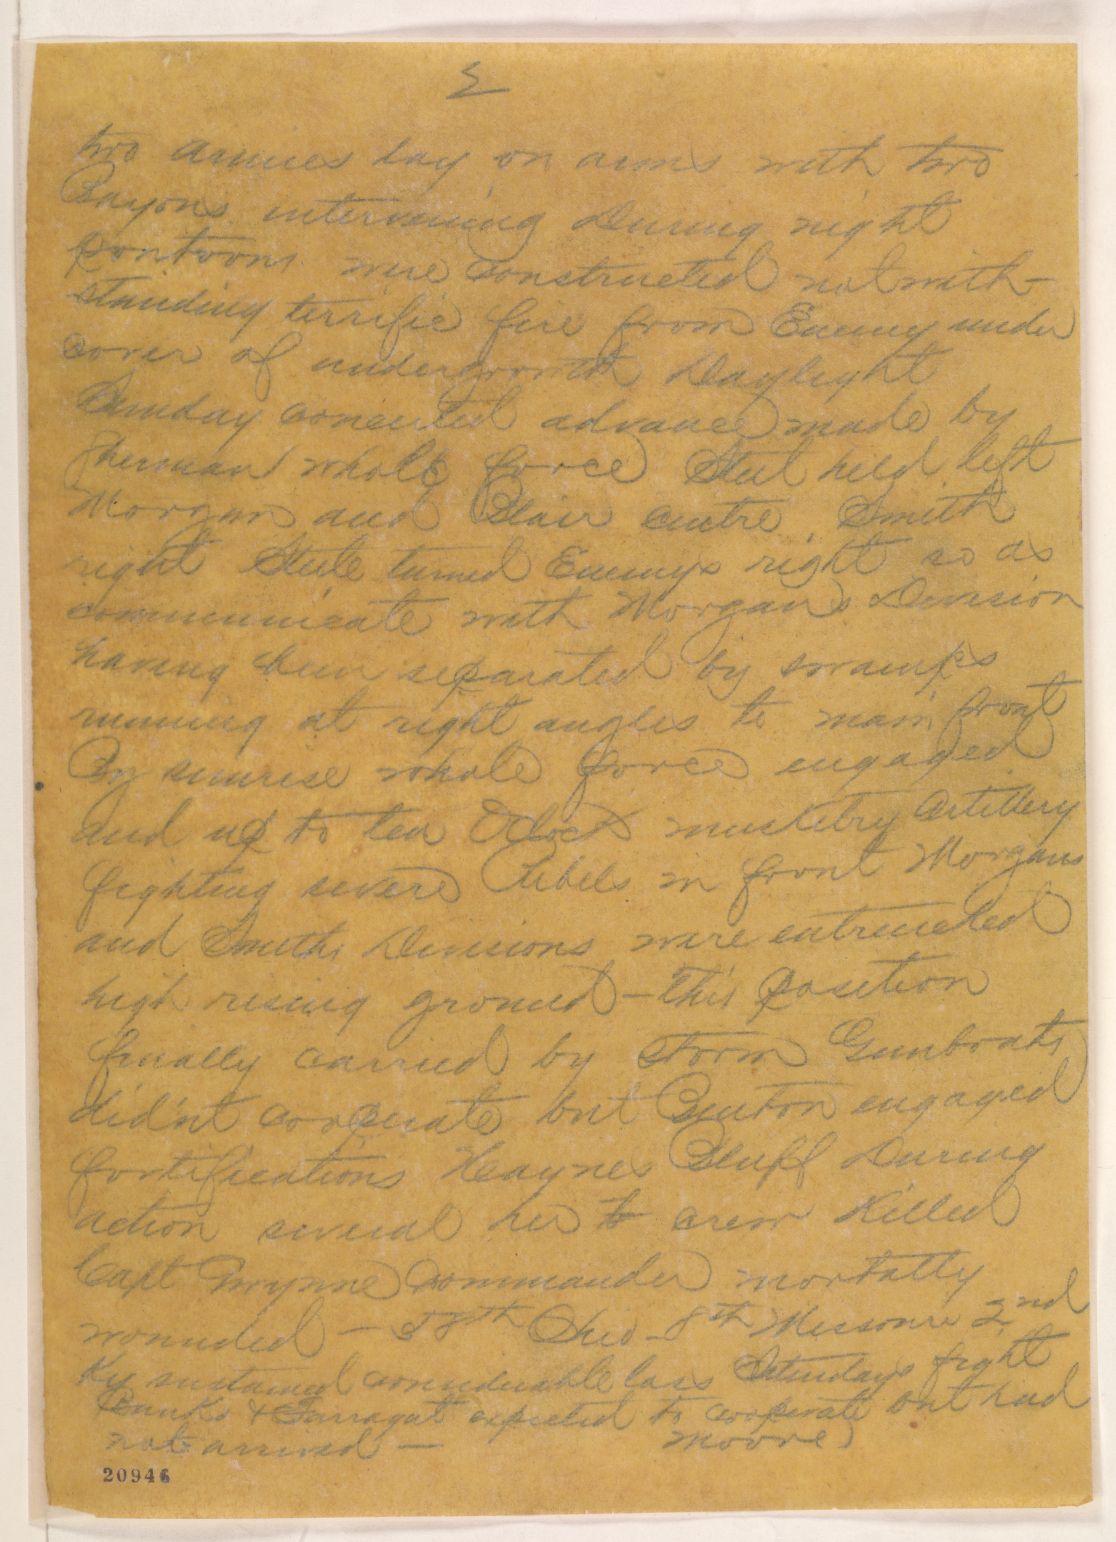 2
two armies lay on arms with two
Bayous intervening During night
pontoons were constructed notwith-
standing terrific fire from Enemy under
cover of undergrowth Daylight
Sunday concerted advance made by
Sherman whole force Steel held left
Morgan and Blair centre Smith
right Steele turned Enemys right so as
communicate with Morgans Division
having been separated by swamps
running at right angles to main front
By sunrise whole force engaged
and up to ten Oclock musketry Artillery
fighting severe Rebels in front Morgans
and Smiths Divisions were entrenched
high rising ground – This position
finally carried by storm Gunboats
didnt cooperate but Benton engaged
fortifications Haynes Bluff During
action several her crew Killed
Capt Gwynne Commander mortally
wounded – 58th Ohio – 8th Missouri 2nd
Ky sustained considerable loss Saturdays fight
Banks & Farragut expected to cooperate but had
not arrived – Moore
20946